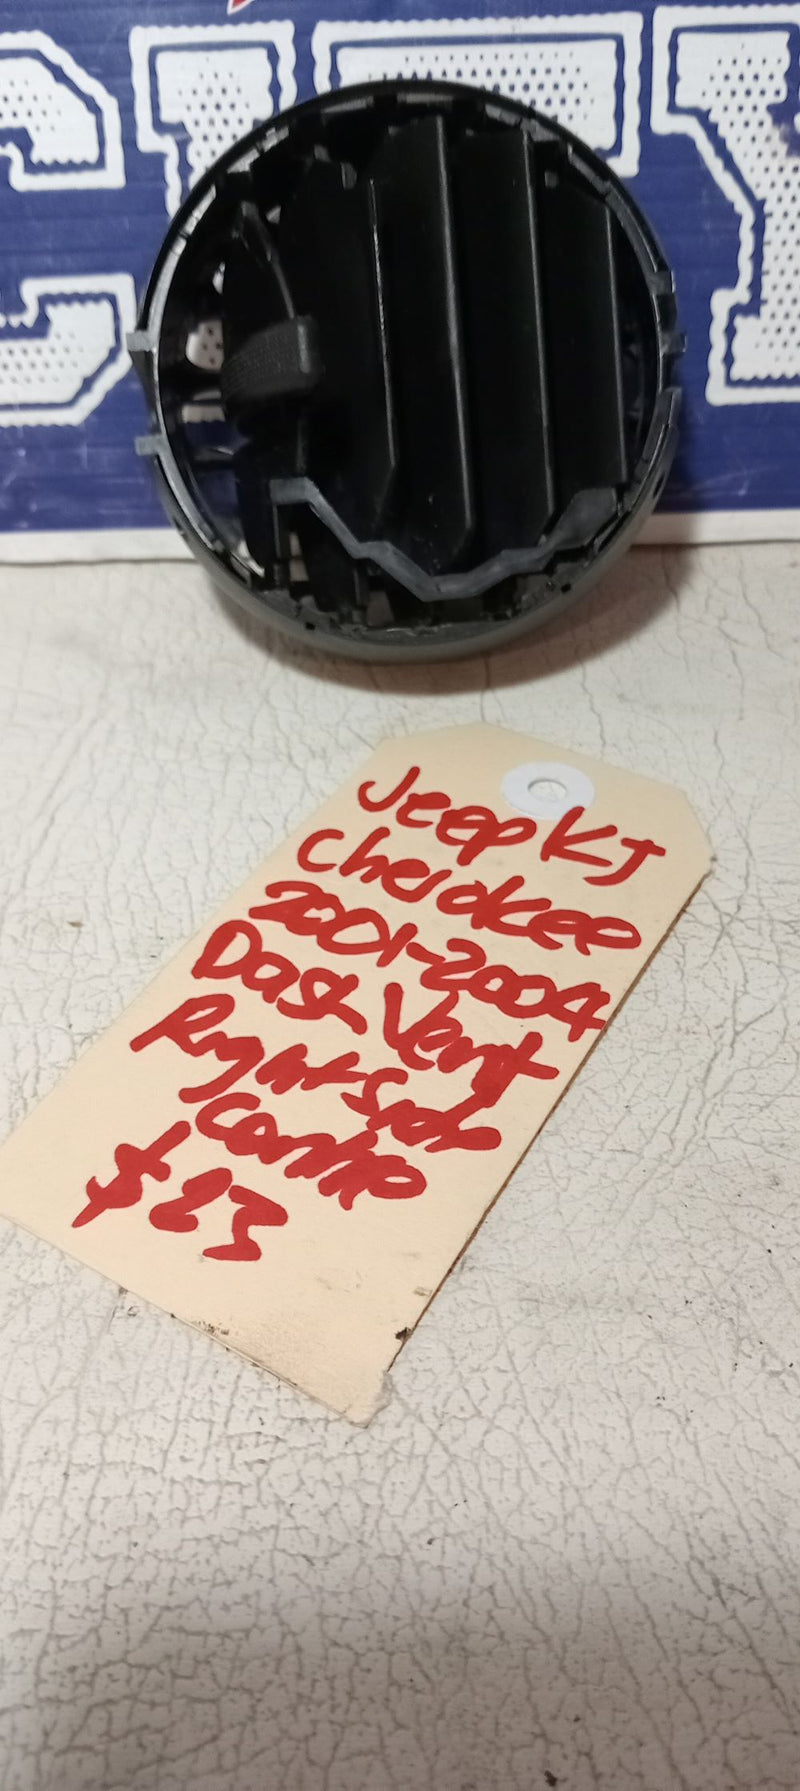 CITY
Jeep KJ
Cherokee
2001-2004
Dash Vent
Right Side
Centre
$23